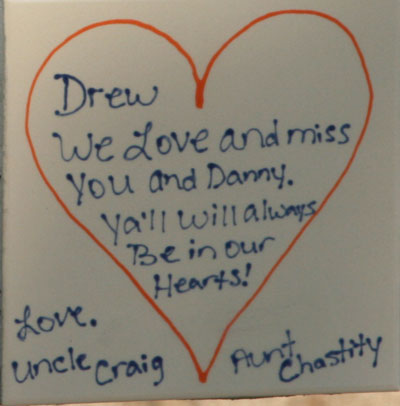 Drew
We Love and miss
You and Danny.
Ya'll will always
Be in our
Hearts!
Love.
Uncle Craig
Aunt Chastity